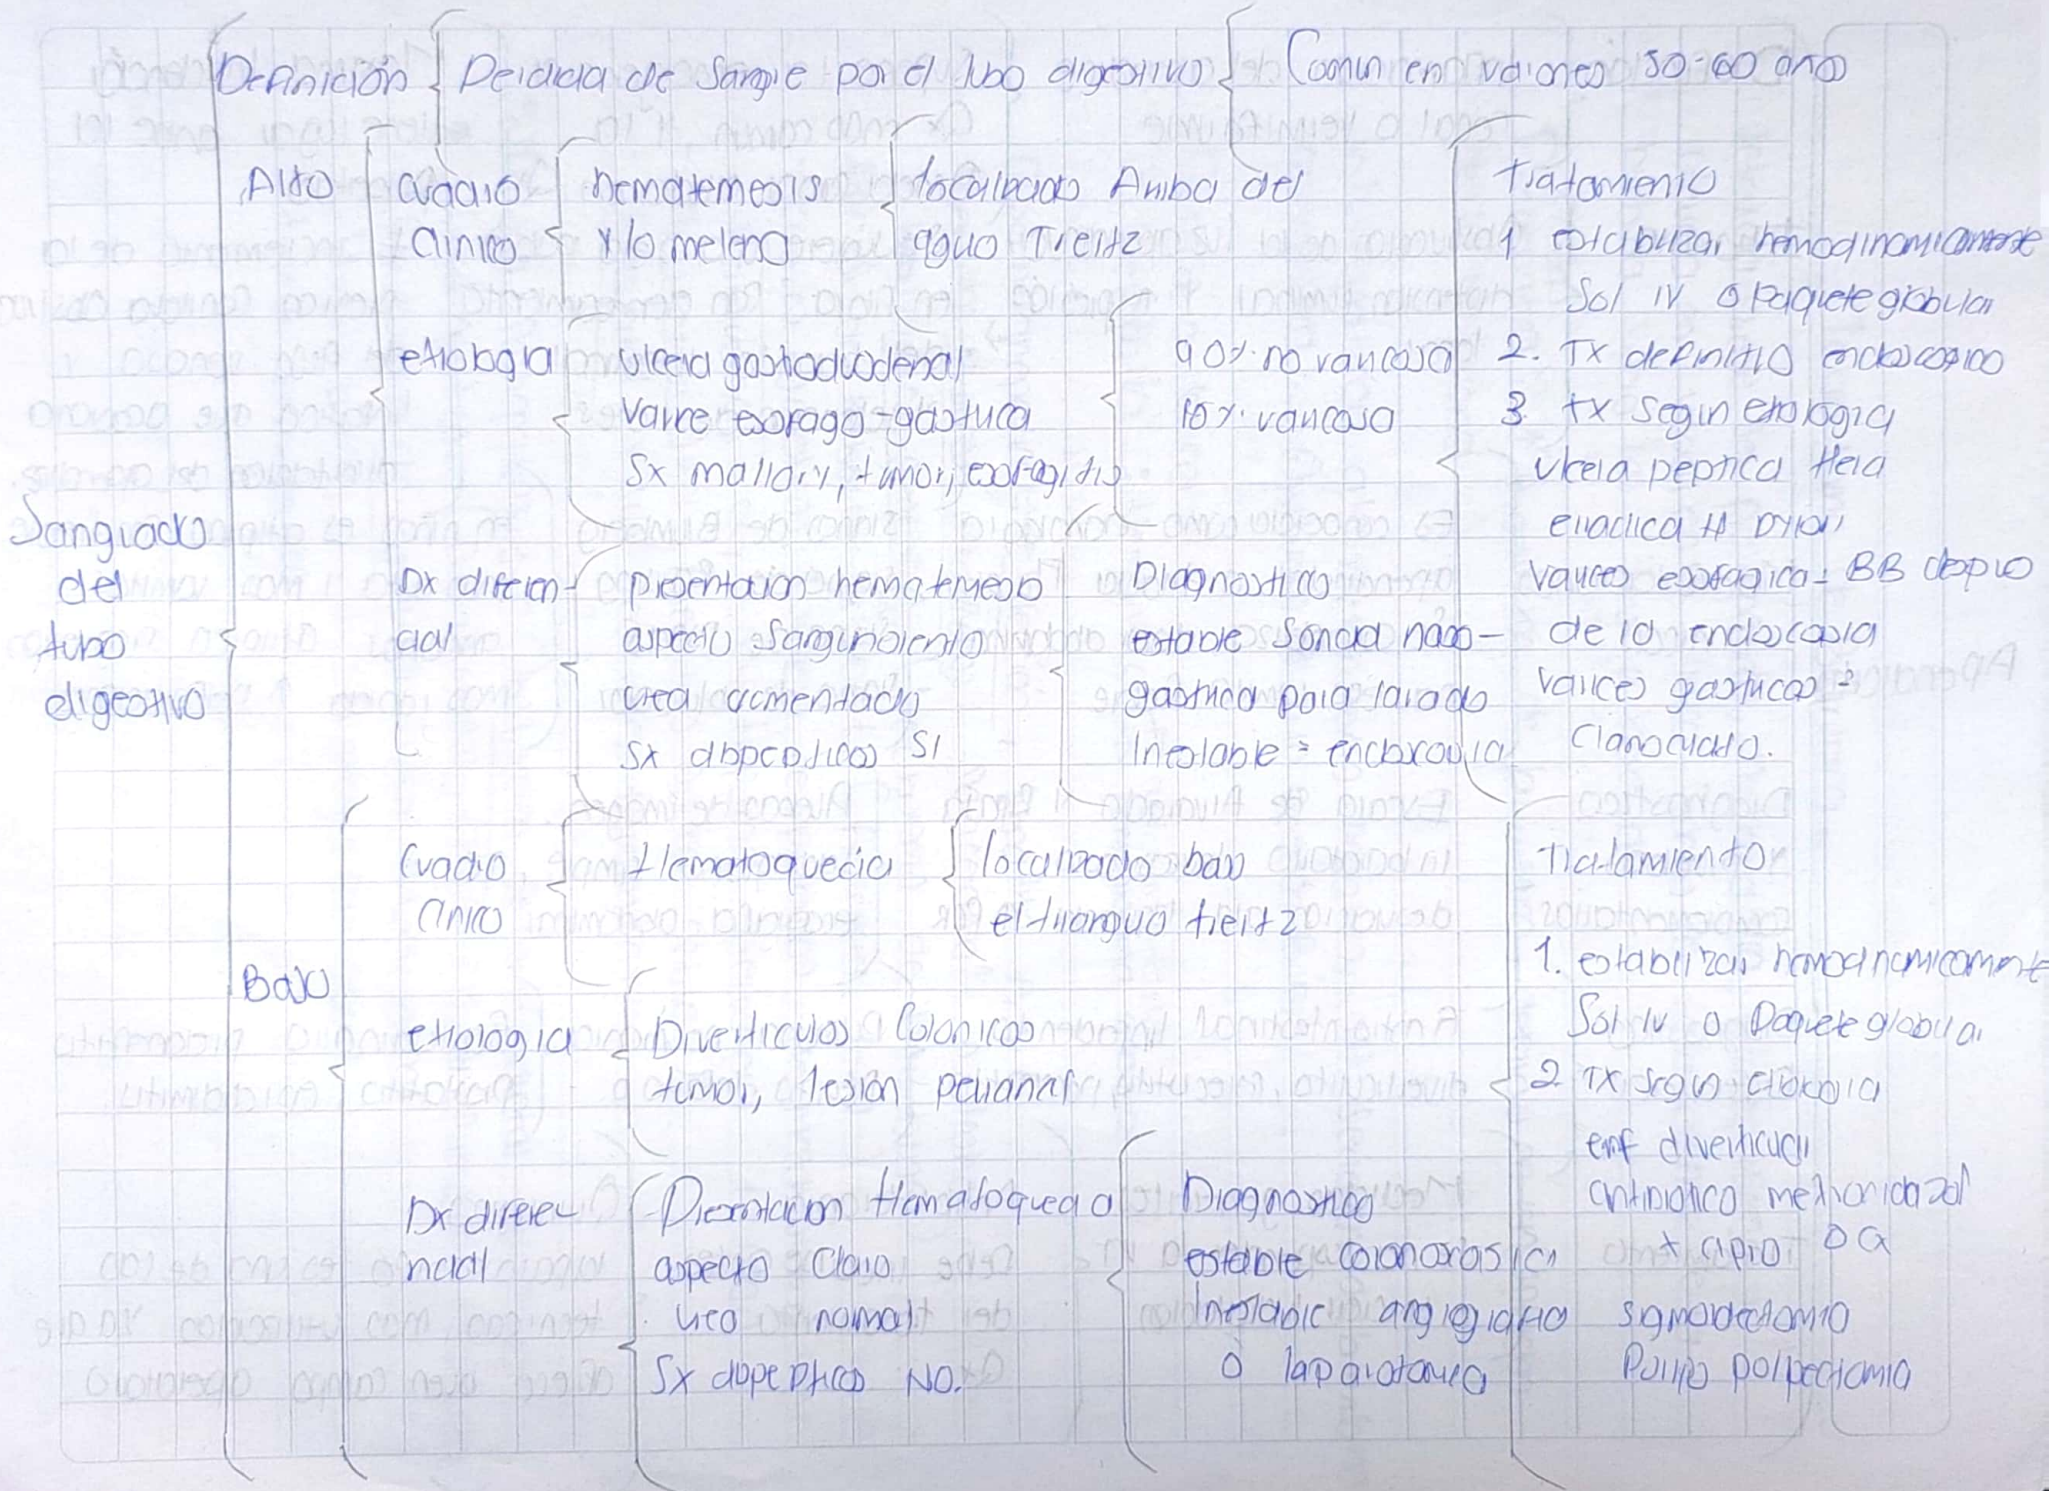 Definición
Perdida de Sangre por el tubo digestivo
Comun en varones 50-60 años
Sangrado
del
tubo
digestivo
Alto
cuadro
clinico
hematemesis
y/o melena
localizado Arriba del
Treitz
etiologia
ulcera gastroduodenal
varice esofago-gastrica
Sx mallory, tumor, esofagitis
90% no varicosa
10% varicosa
Dx diferen-
cial
presentacion hematemesis
aspecto Sanguinolento
urea aumentado
Sx dispepticos SI
Diagnostico
estable Sonda naso-
gastrica para lavado
Inestable = endoscopia
Tratamiento
1 estabilizar hemodinamicamente
Sol IV o paquete globular
2. Tx definitio endoscopico
3. tx Segun etiologia
ulcera peptica
erradica H pylori
varices esofagica = BB
de la endoscopia
varices gastricas =
Cianocrilato.
Bajo
Cuadro
clinico
Hematoquecia
localizado bajo
el triangulo treitz
etiologia
Diverticulos Colonicos
tumor, lesion perianal
Dx difere-
ncial
Presentacion Hematoquecia
aspecto Claro
urea normal
Sx dispepticos NO.
Diagnostico
estable colonoscopia
Inestable angiografia
o laparotomia
Tratamiento
1. estabilizar hemodinamicamente
Sol IV o paquete globular
2. TX segun etiologia
enf diverticular
antibiotico metronidazol
+ cipro
sigmoidectomia
Polipo polipectomia